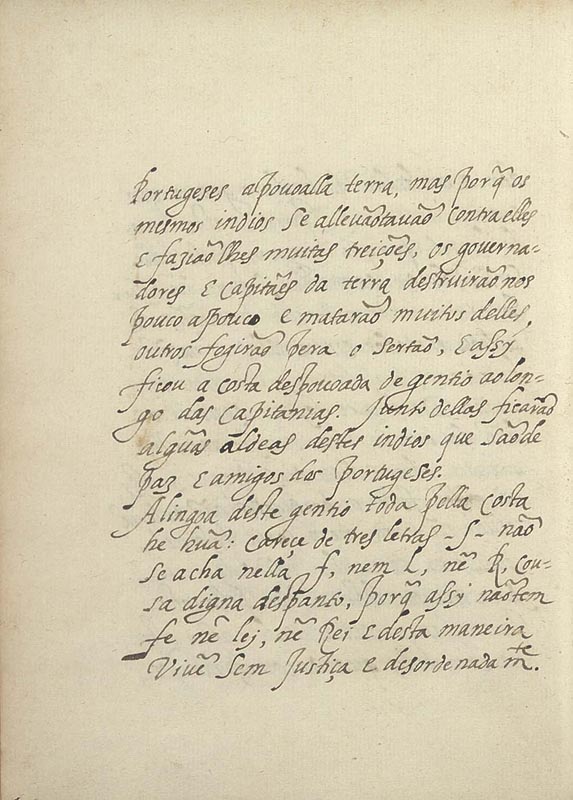 Portugeses a povoalla terra, mas porq̃ os
mesmos indios se allevãotavaõ Contra elles
E faziaõ lhes muitas treições, os governa-
dores E Capitães da terra destruiraõ nos
pouco a pouco e mataraõ muitos delles,
outros fogiraõ pera o Sertaõ, E assy
ficou a costa despovoada de gentio ao lon-
go das Capitanias. Junto dellas ficaraõ
algũas aldeas destes indios que saõ de
paz E amigos dos Portugeses.
A lingoa deste gentio toda pella Costa
he hũa: Careçe de tres letras - S - naõ
se acha nella f, nem L, nẽ R, cou-
sa digna despanto, porq̃ assy naõ tem
fe nẽ lei, nẽ Rei E desta maneira
Vivẽ Sem Justiça e desordenadamte.